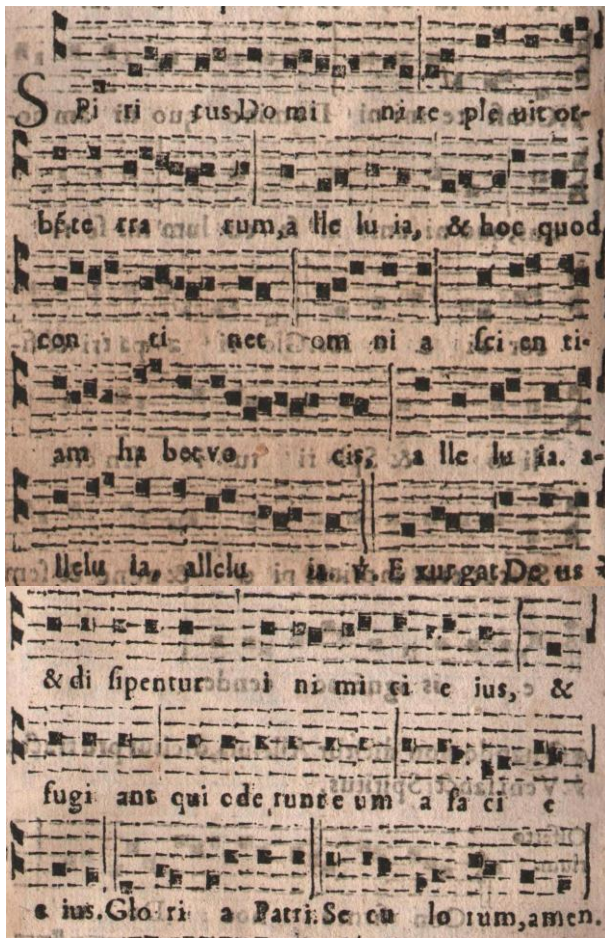 SPi ri tus Do mi ni re ple uit or-
bé te rra rum, a lle lu ia, & hoc quod
con ti net om ni a sci en ti-
am ha bet vo cis, a lle lu ia. a-
llelu ia, allelu ia ℣. E xurgat De us
& di sipentur i ni mi ci e ius, &
fugi ant qui ode runt e um a fa ci e
e ius. Glo ri a Patri. Se cu lo rum, amen.